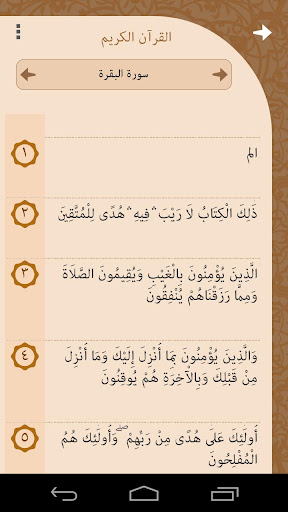 القرآن الكريم
سورة البقرة
١
الم
٢
ذَلِكَ الْكِتَابُ لَا رَيْبَ ۛ فِيهِ ۛ هُدًى لِلْمُتَّقِينَ
٣
الَّذِينَ يُؤْمِنُونَ بِالْغَيْبِ وَيُقِيمُونَ الصَّلَاةَ
وَمِمَّا رَزَقْنَاهُمْ يُنْفِقُونَ
٤
وَالَّذِينَ يُؤْمِنُونَ بِمَا أُنْزِلَ إِلَيْكَ وَمَا أُنْزِلَ
مِنْ قَبْلِكَ وَبِالْآخِرَةِ هُمْ يُوقِنُونَ
٥
أُولَئِكَ عَلَى هُدًى مِنْ رَبِّهِمْ ۖ وَأُولَئِكَ هُمُ
الْمُفْلِحُونَ